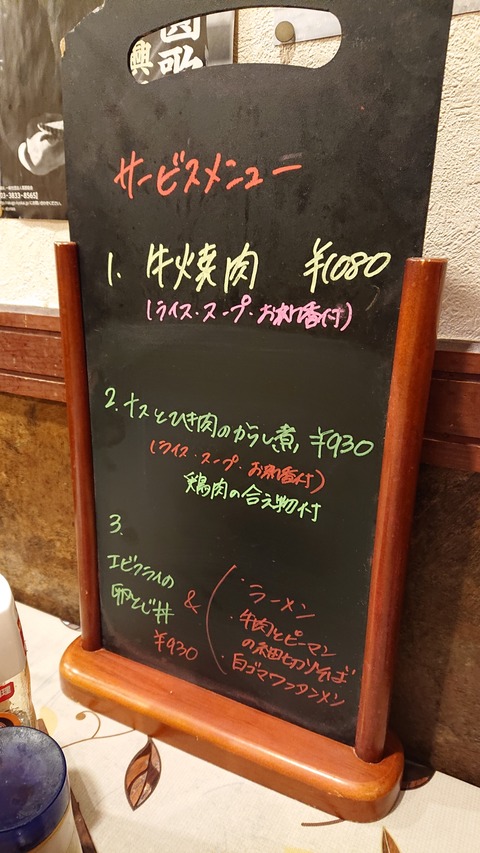 サービスメニュー
1. 牛焼肉 ¥1080
(ライス・スープ・お新香付)
2. ナスとひき肉のからし煮 ¥930
(ライス・スープ・お新香付)
鶏肉の合え物付
3.
エビフライの
卵とじ丼
¥930
&
・ラーメン
・牛肉とピーマン
の細切りそば
・白ゴマワンタンメン
03-3833-8565